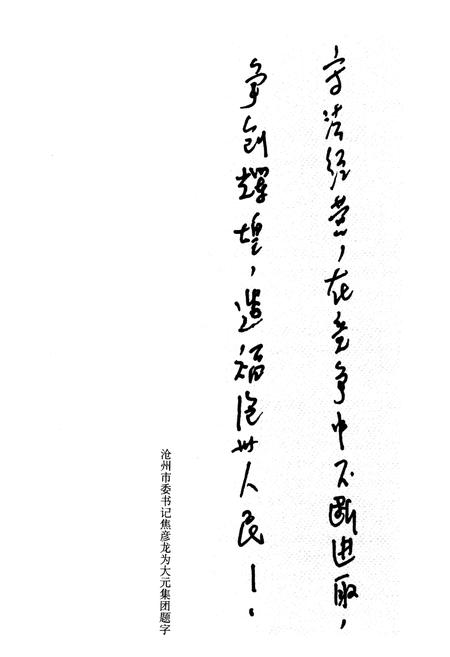 守法经营，在竞争中不断进取，
争创辉煌，造福沧州人民！
沧州市委书记焦彦龙为大元集团题字